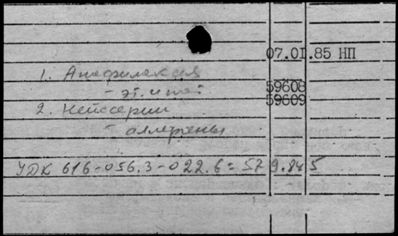 07.01.85 НП
1. Анафилаксия
- эт. и пат.
59608
2. Нейссерии
59609
- аллергены
УДК 616-056.3-022.6=579.845